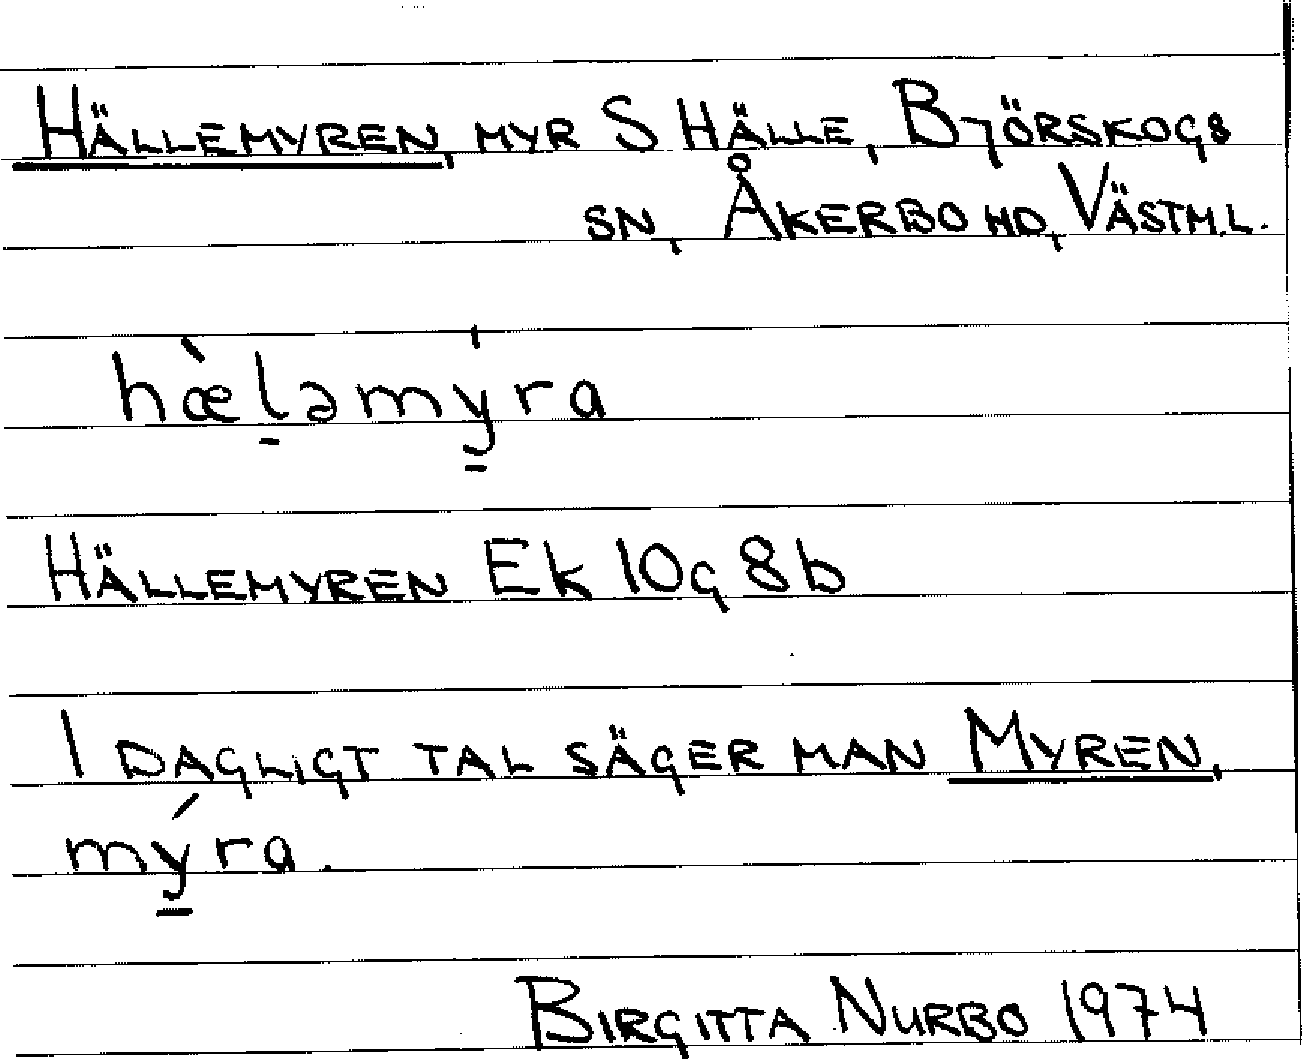 HÄLLEMYREN, MYR S HÄLLE, BJÖRSKOGS
SN, ÅKERBO HD, VÄSTM.L.
hæ̀l̠əmy̳̍ra
HÄLLEMYREN Ek 10g 8b
I DAGLIGT TAL SÄGER MAN MYREN,
mý̠ra.
BIRGITTA NURBO 1974